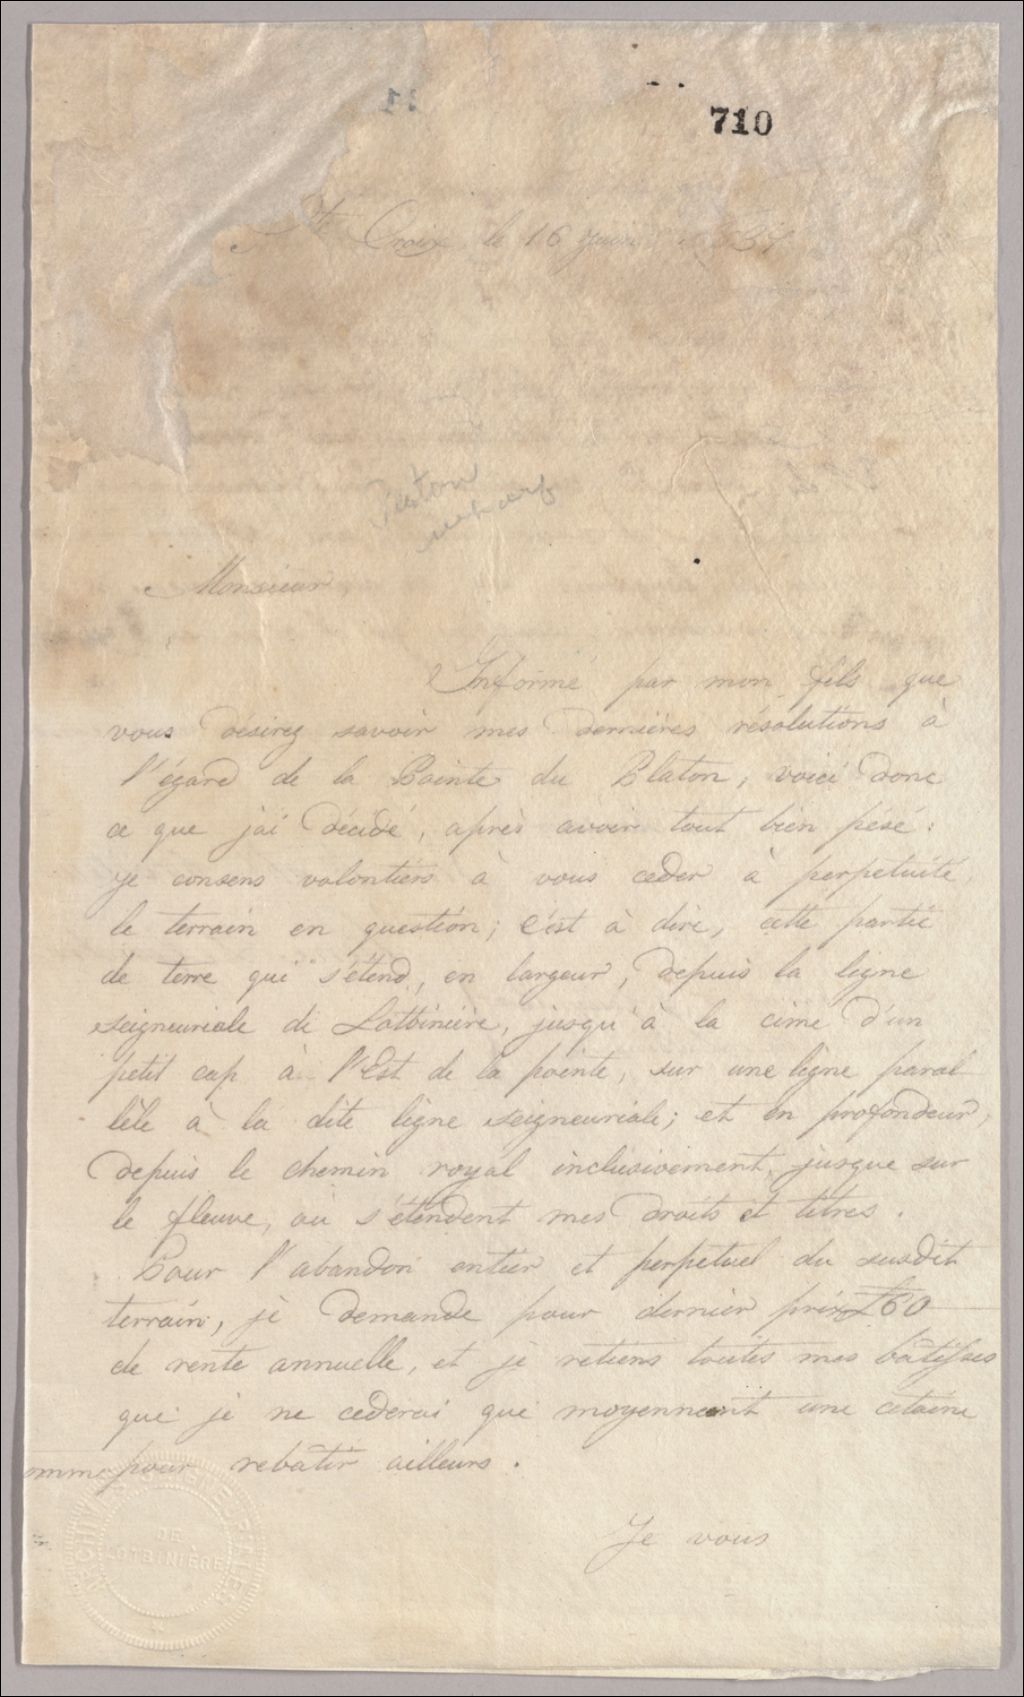 710
Ste Croix le 16 Juin 37
wharf
Monsieur
Informé par mon fils que
vous désirez savoir mes dernières résolutions à
l'égard de la Pointe du Platon, voici donc
ce que j'ai décidé, après avoir tout bien pésé :
je consens volontiers à vous ceder à perpetuité,
le terrain en question; c'est à dire, cette partie
de terre qui s'étend, en largeur, depuis la ligne
seigneuriale de Lotbinière, jusqu'à la cime d'un
petit cap à l'Est de la pointe, sur une ligne paral
lèle à la dite ligne seigneuriale; et en profondeur,
depuis le chemin royal inclusivement, jusque sur
le fleuve, où s'étendent mes droits et titres.
Pour l'abandon entier et perpetuel du susdit
terrain, je demande pour dernier prix £60
de rente annuelle, et je retiens toutes mes bâtisses
que je ne cederai que moyennant une certaine
omme pour rebâtir ailleurs.
Je vous
ARCHIVES SEIGNEURIALES
DE
LOTBINIÈRE